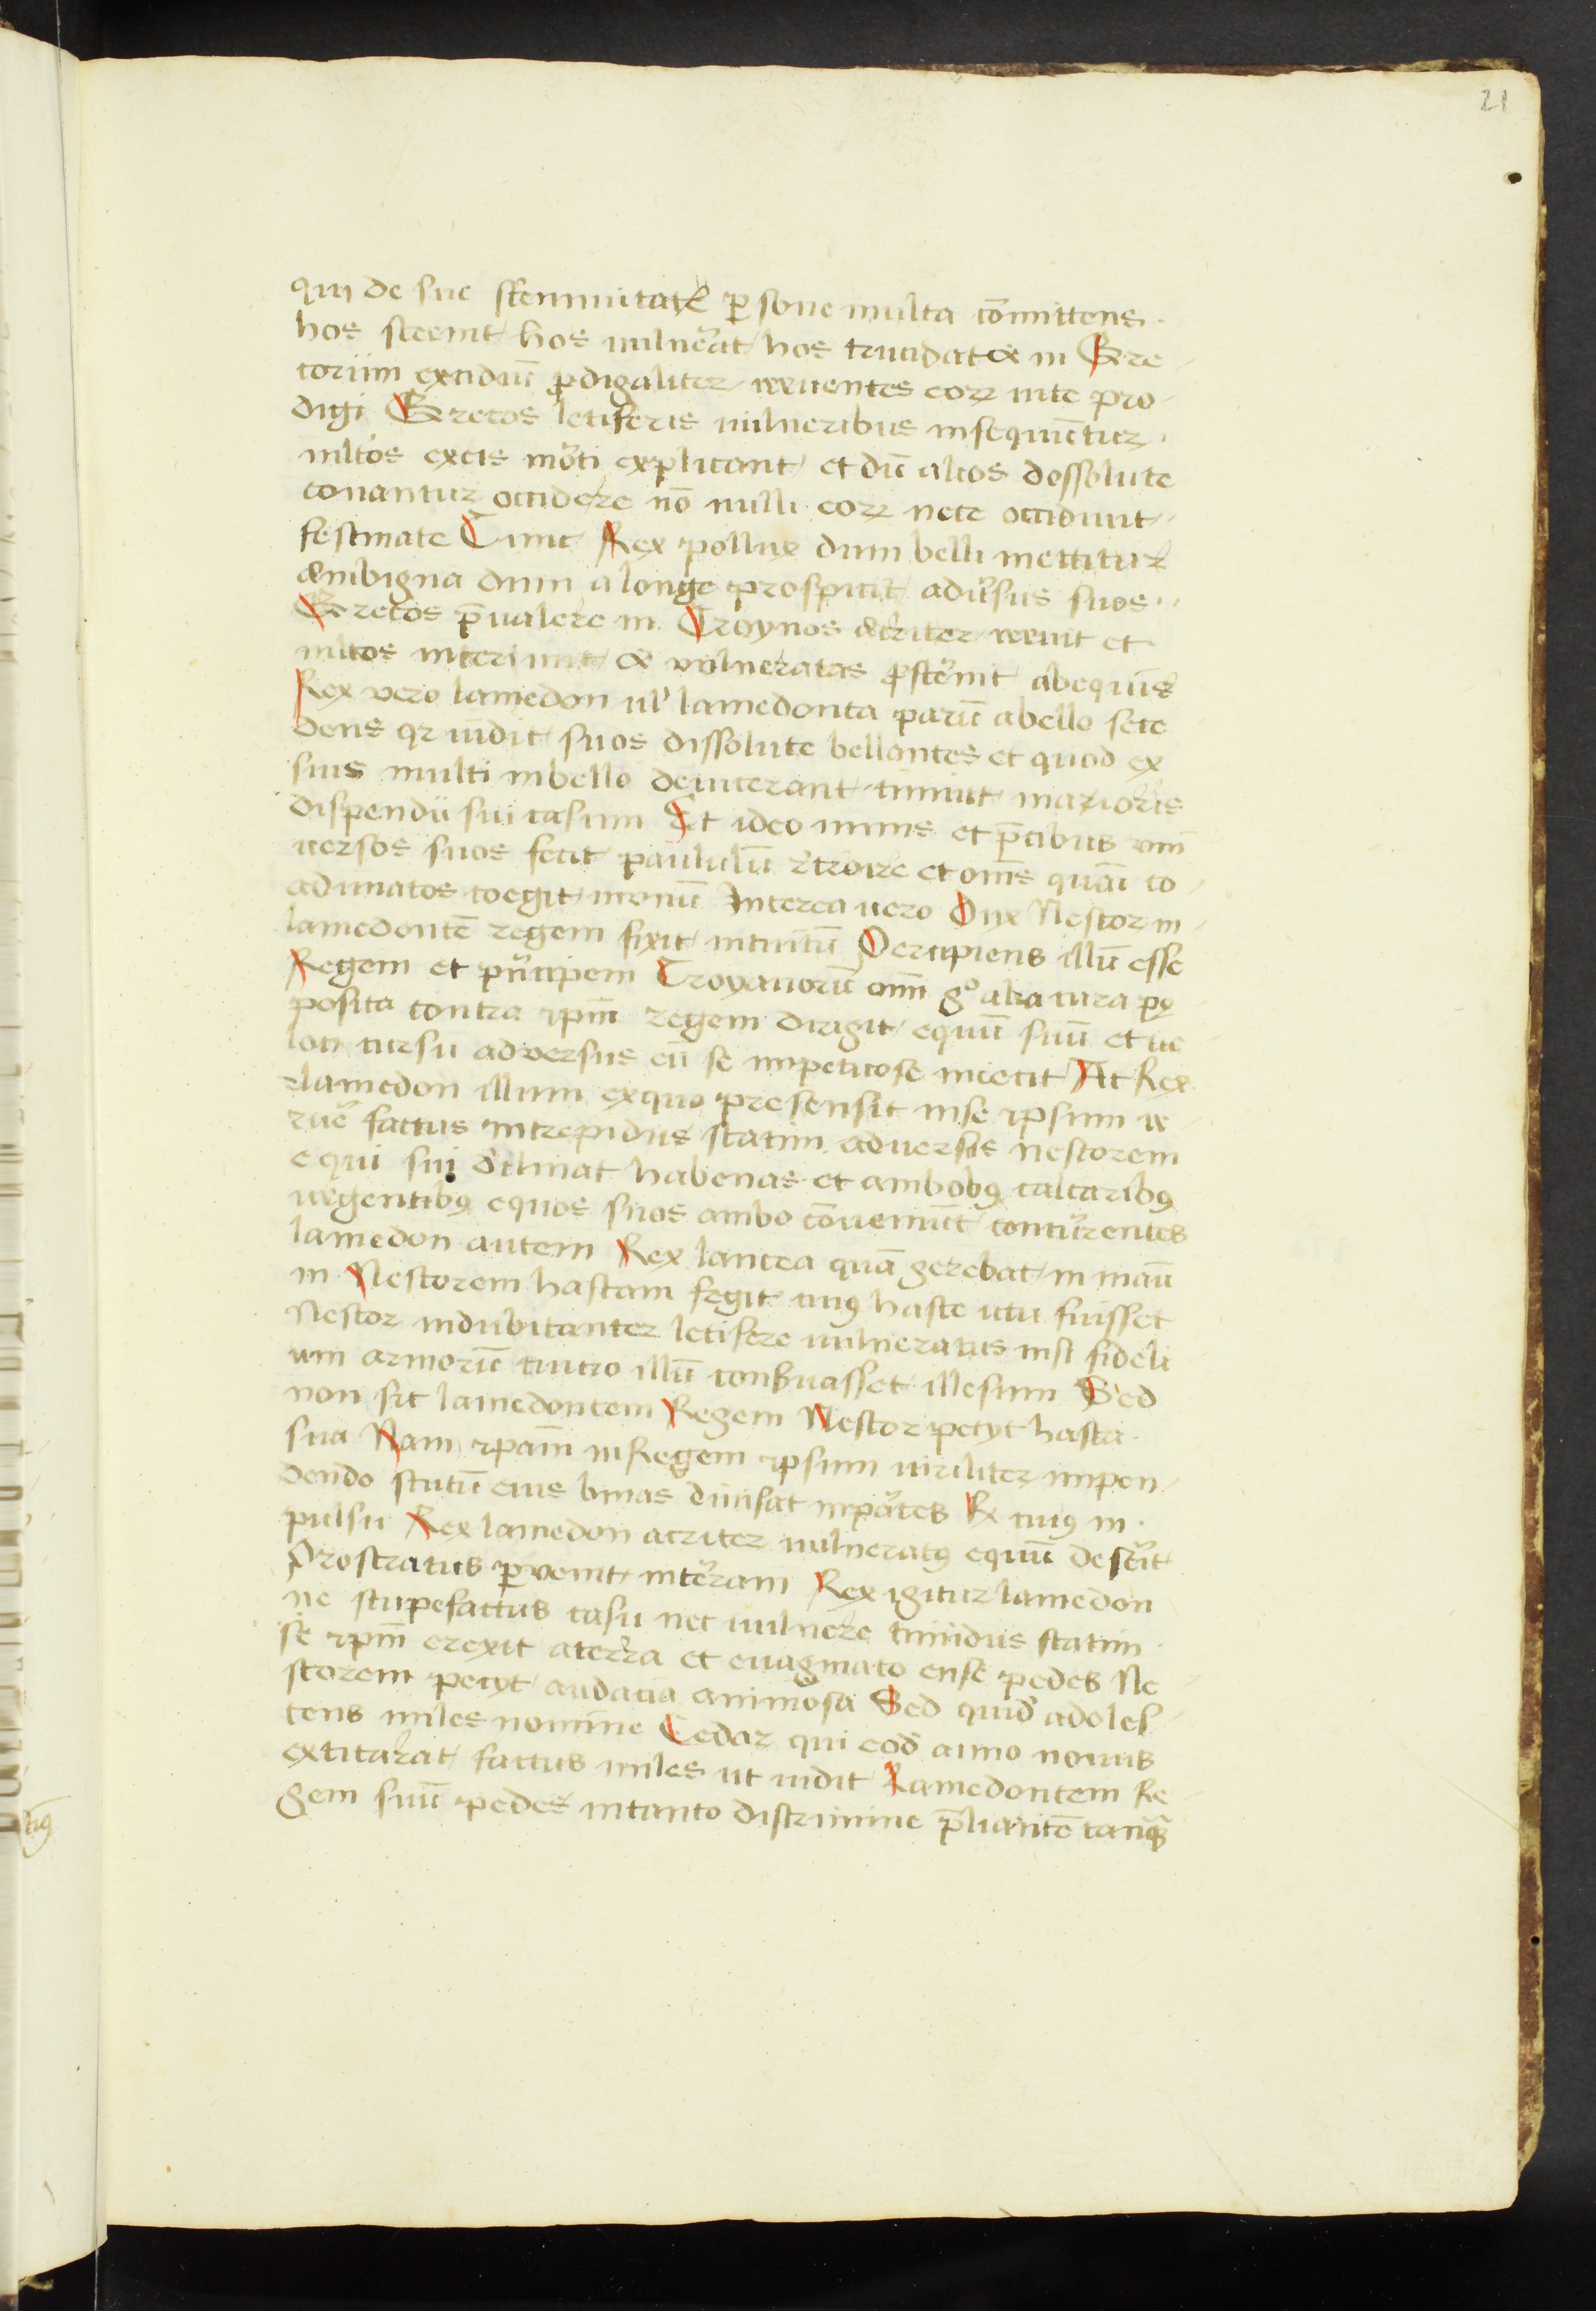 21
quj de sue strennuitatẽ ꝑsone multa cōmittens ·
hos steernt hos uulnẽat hos trucidat & in Gre
corum excidiū ꝓdigaliter irruentes eoꝝ uite pro
digi Grecos letiferis uulneribus insequūtur ·
mltos exeis mõti explicant et dū alios dossolute
conantur occidere nō nulli eoꝝ nece occidunt
festinate Tunc Rex pollux dum belli mettitur
ambigua dum a longe prospicit adũsus suos ··
Grecos p̄ualere in Troynos acriter irruit et
mltos interimit & vulneratas ꝓstẽnit abequis
Rex vero lamedon ul' lamedonta parū abello sece
dens qr uidit suos dissolute bellantes et quod ex
suis multi inbello deiuicerant timuit marioris
dispendii sui casum Et ideo minis et p̄cibus vni
uersos suos fecit paululū retroire et om̄s quāi co
adunatos coegit inonū Interea uero Dux Nestor in
lamedontē regem fixit intuitū Percipiens illū esse
Regem et pũcipem Troyanorū om̄i gͦ alia cura pꝰ
posita contra ipm̄ regem dirigit equū suū et ue
loci cursu adversus eū se impetuose iniecit At Rex
lamedon illum exquo presensit inse ipsum ir
ruẽ factus intrepidus statim aduersus nestorem
equi sui d'clinat habenas et ambobꝰ calcaribꝰ
urgentibꝰ equos suos ambo cōueniūt concurentes
lamedon autem Rex lancea quā gerebat in manū
in Nestorem hastam fregit cuiꝰ haste ictu fuisset
Nestor indubitanter letifere uulneratus nisi fideli
um armorū tuicio illū conßuasset illesum Sed
non sic lamedontem Regem Nestor petyt hasta
sua Nam ipam̄ inRegem ipsum uiriliter impen
dendo scutū eius binas diuisat inpãtes Ex cuiꝰ in ·
pulsu Rex lamedon acriter uulneratꝰ equū desẽit
Prostratus ꝑvenit intẽram Rex igitur lamedon
ne stupefactus casu nec uulnere timidus statim ·
se ipm̄ erexit aterra et euaginato ense pedes Ne
storem petyt audatia animosa Sed quid' adoles
cens miles nomine Cedar qui eod' anno nouus
extitarat factus miles ut uidit Lamedontem Re
gem suū pedes intanto discrimine p̄liantē tanqꝫ